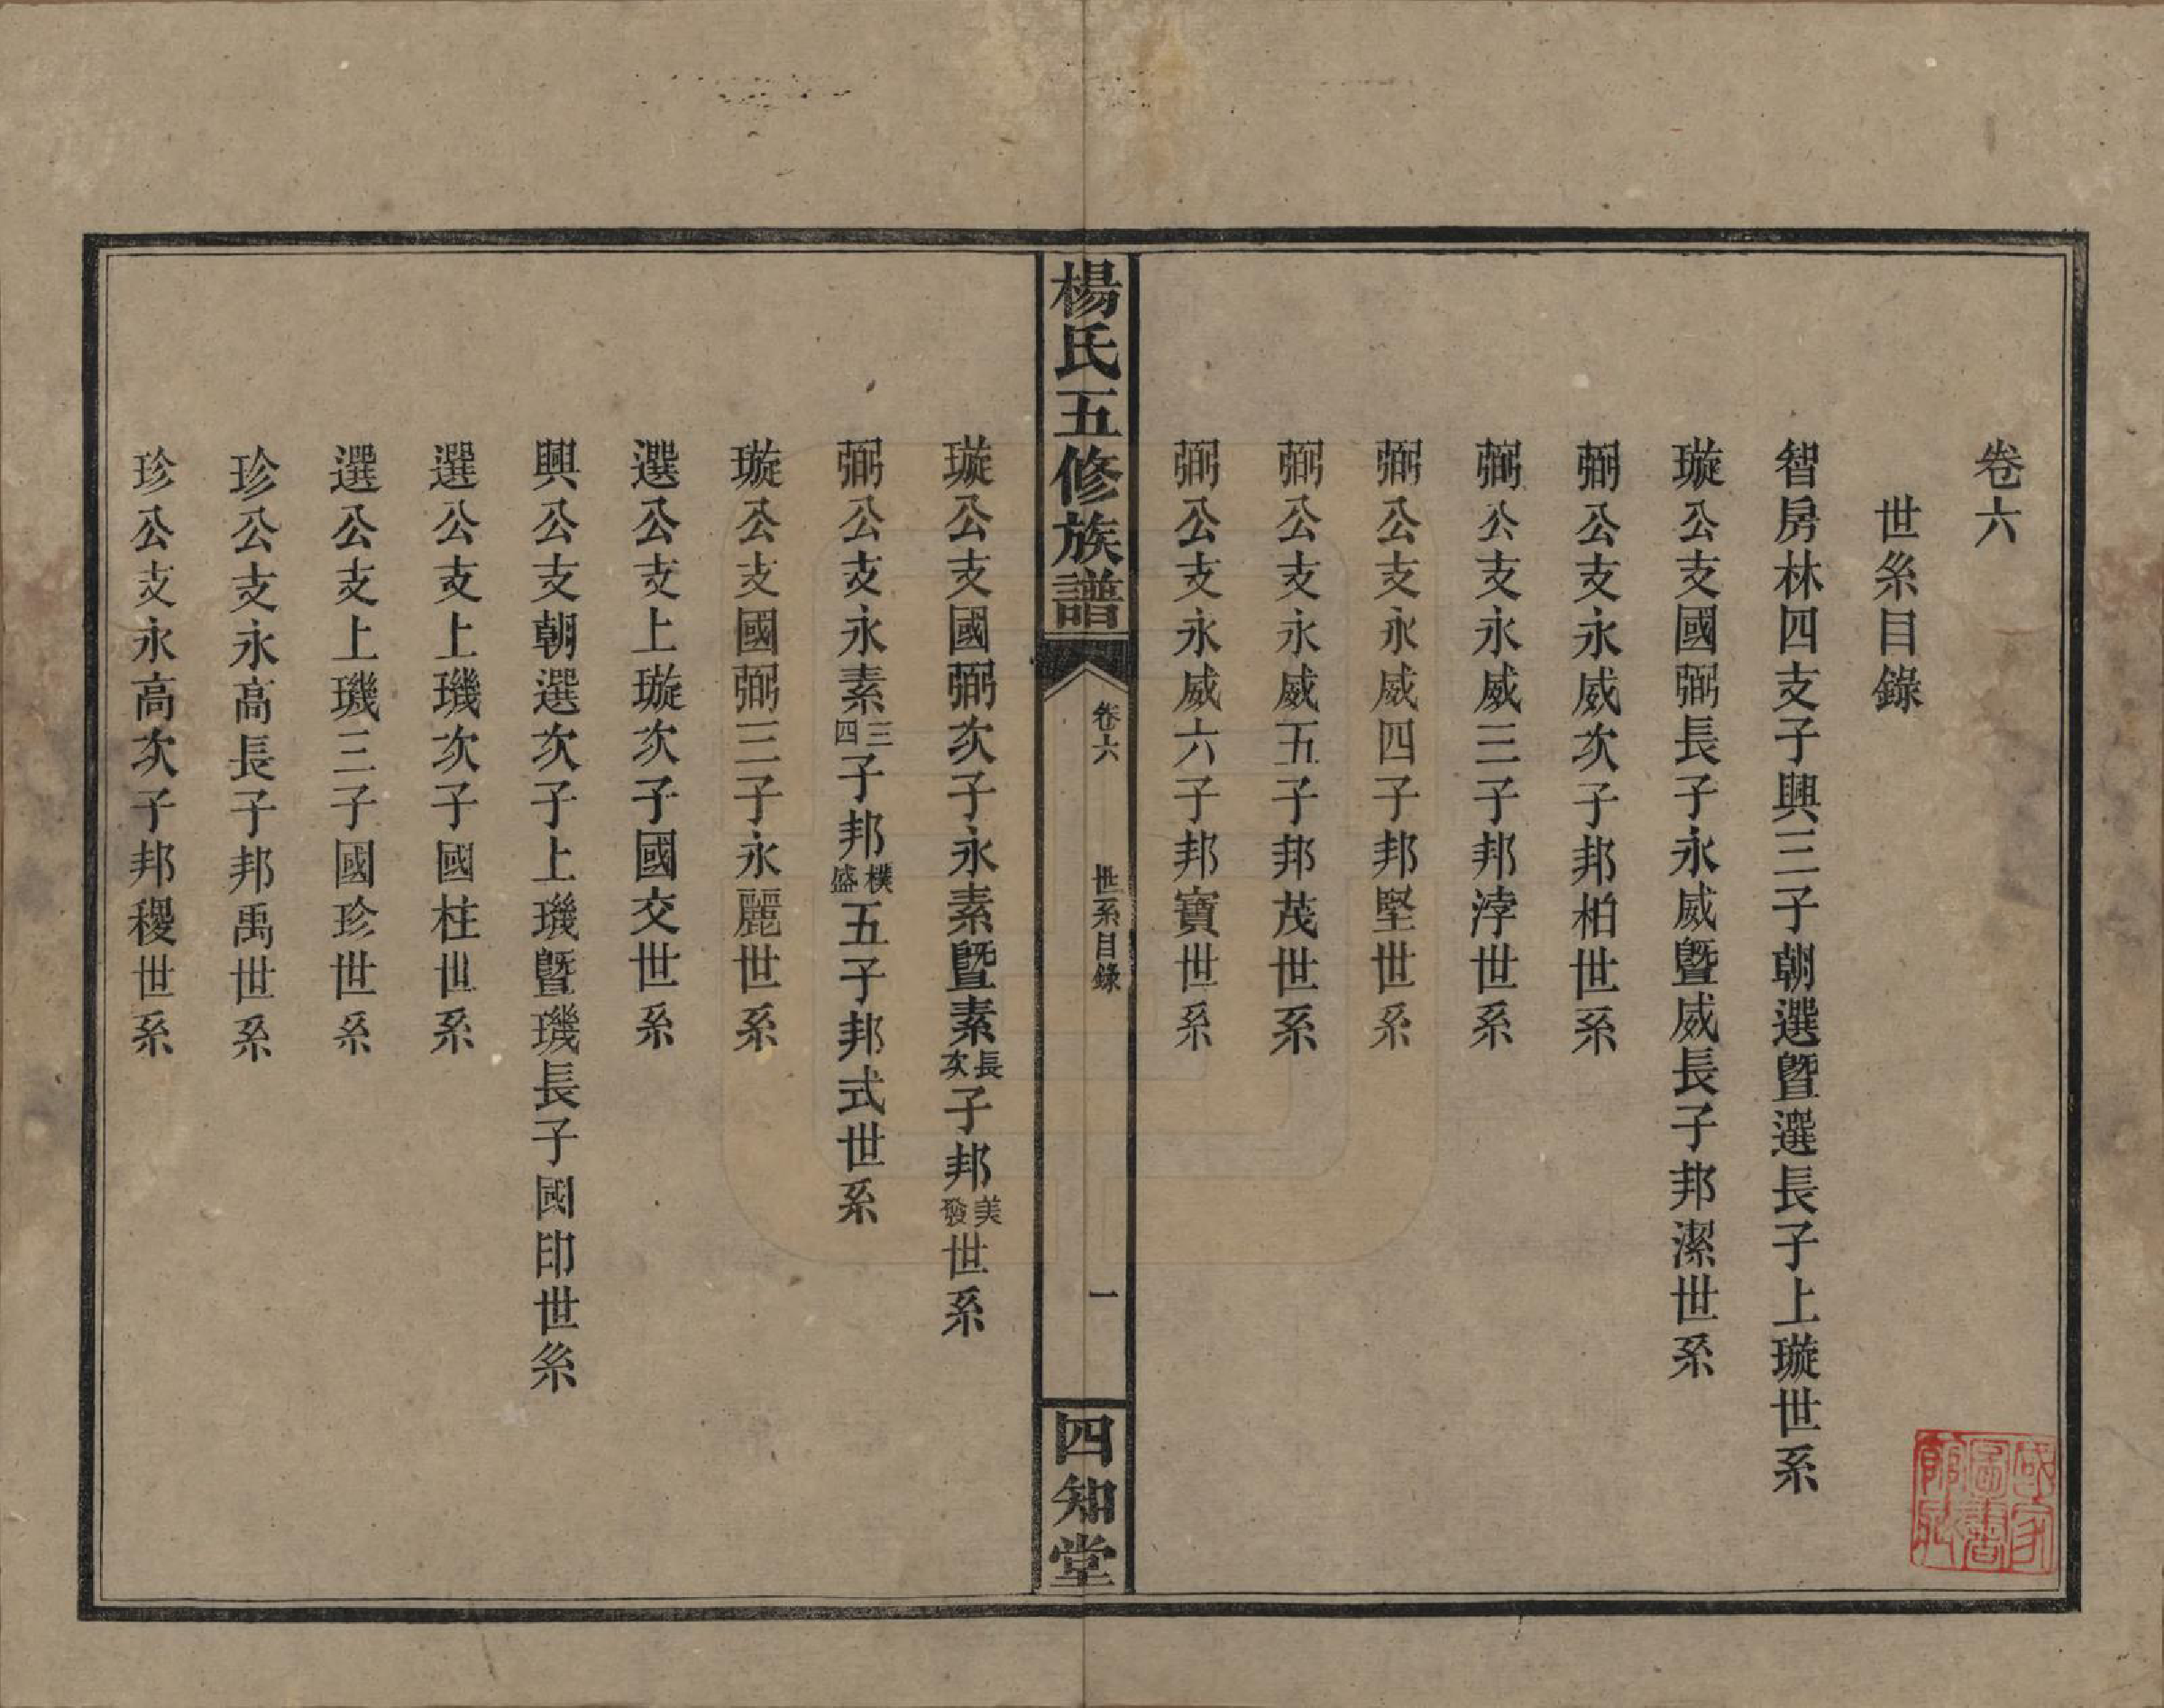 卷六
世系目錄
智房林四支子興三子朝選暨選長子上璇世系
璇公支國弼長子永威暨威長子邦潔世系
弼公支永威次子邦柏世系
弼公支永威三子邦浡世系
弼公支永威四子邦堅世系
弼公支永威五子邦茂世系
弼公支永威六子邦寶世系
楊氏五修族譜
卷六
世系目錄
一
四知堂
璇公支國弼次子永素暨素長次子邦美發世系
弼公支永素三四子邦樸盛五子邦式世系
璇公支國弼三子永麗世系
選公支上璇次子國交世系
興公支朝選次子上璣暨璣長子國印世系
選公支上璣次子國柱世系
選公支上璣三子國珍世系
珍公支永高長子邦禹世系
珍公支永高次子邦稷世系
國家
圖書
館藏